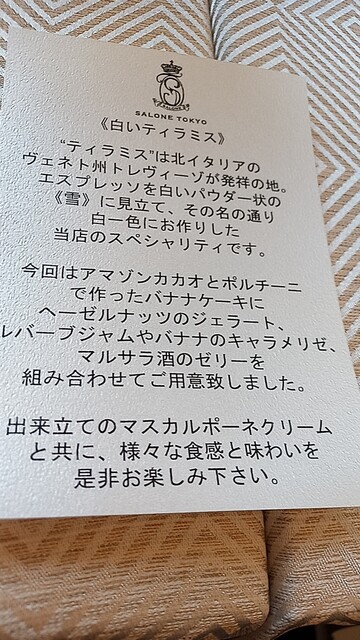 SALONE
SALONE TOKYO
《白いティラミス》
“ティラミス”は北イタリアの
ヴェネト州トレヴィーゾが発祥の地。
エスプレッソを白いパウダー状の
《雪》に見立て、その名の通り
白一色にお作りした
当店のスペシャリティです。
今回はアマゾンカカオとポルチーニ
で作ったバナナケーキに
ヘーゼルナッツのジェラート、
ルバーブジャムやバナナのキャラメリゼ、
マルサラ酒のゼリーを
組み合わせてご用意致しました。
出来立てのマスカルポーネクリーム
と共に、様々な食感と味わいを
是非お楽しみ下さい。